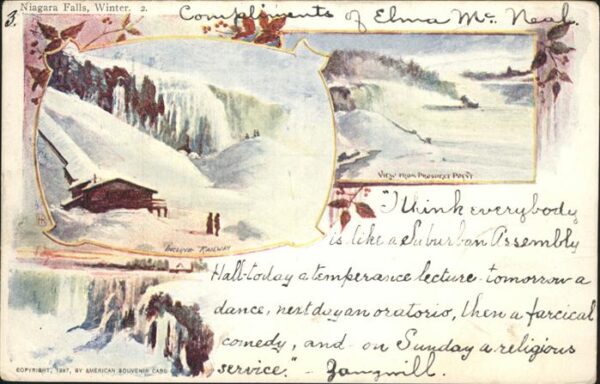 3.
Niagara Falls, Winter. 2.
Compliments of Elma Mc. Neal.
VIEW FROM PROSPECT POINT
INCLINE RAILWAY
"I think everybody
is like a Suburban Assembly
Hall-today a temperance lecture-tomorrow a
dance, next day an oratorio, then a farcical
comedy, and - on Sunday a religious
service." - Zangwill.
COPYRIGHT, 1897, BY AMERICAN SOUVENIR CARD